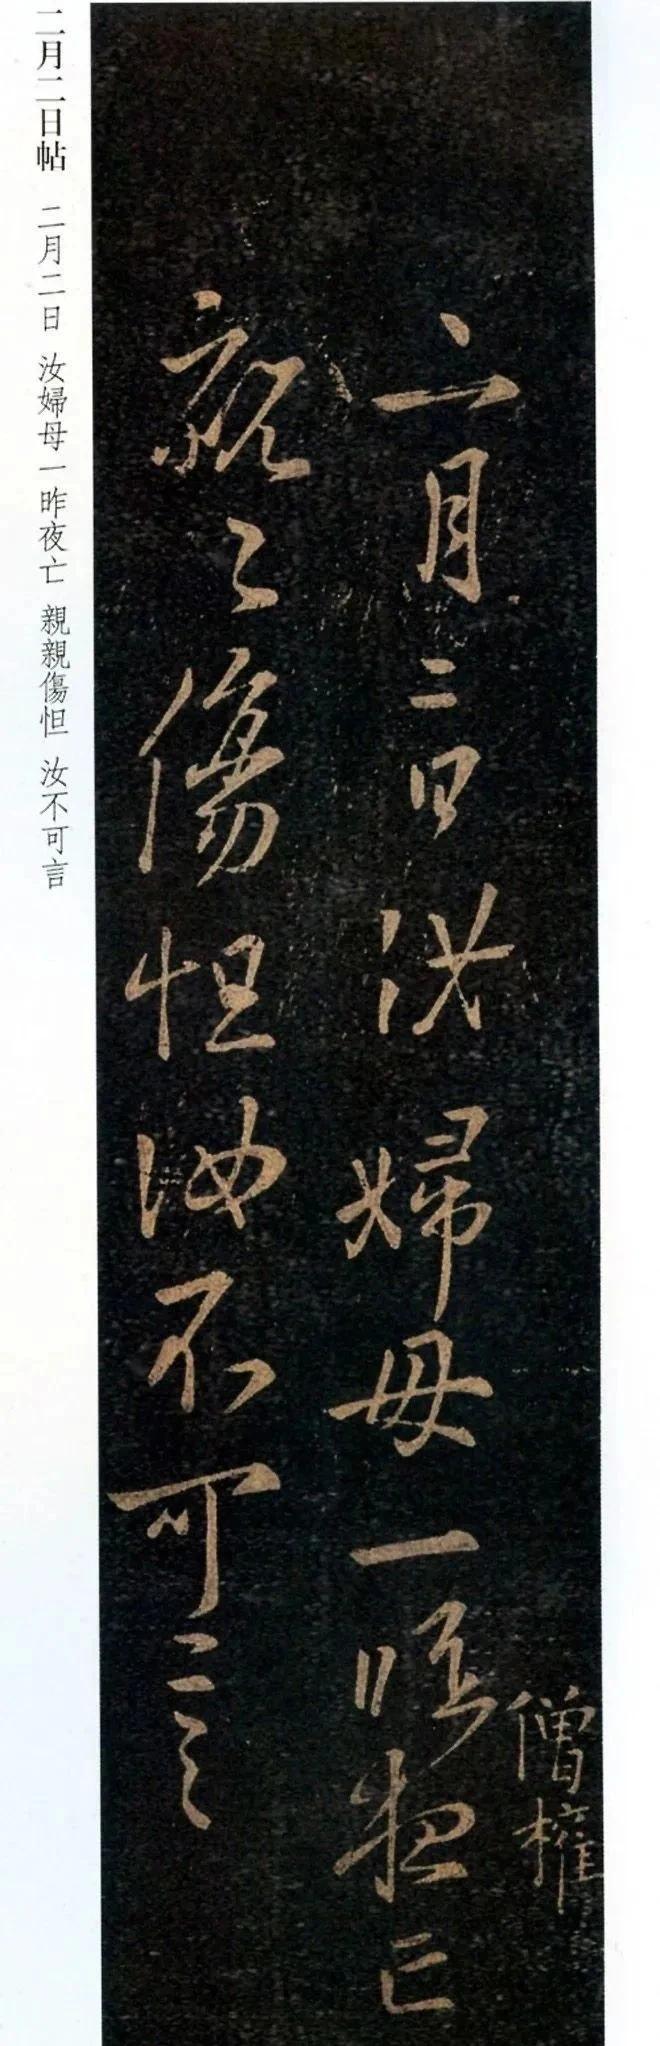 二月二日汝婦母一昨夜亡
僧權
親〻傷怛汝不可言
二月二日帖 二月二日 汝婦母一昨夜亡 親親傷怛 汝不可言